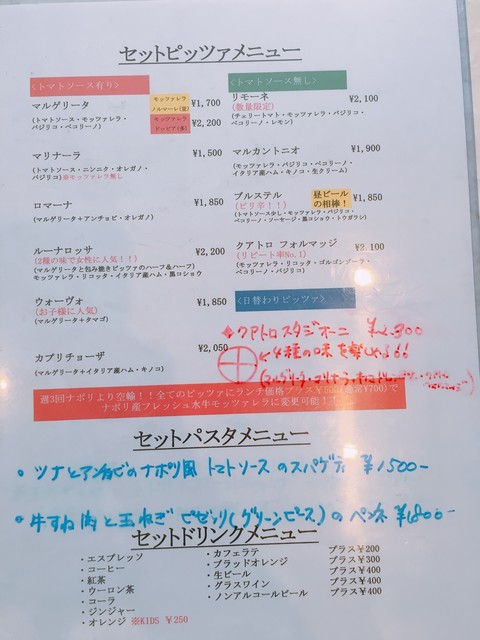 セットピッツァメニュー
<トマトソース有り>
マルゲリータ
(トマトソース・モッツァレラ・
バジリコ・ペコリーノ)
モッツァレラ
ノルマーレ(並) ¥1,700
モッツァレラ
ドッピア(倍) ¥2,200
マリナーラ ¥1,500
(トマトソース・ニンニク・オレガノ・
バジリコ)※モッツァレラ無し
ロマーナ ¥1,850
(マルゲリータ+アンチョビ・オレガノ)
ルーナロッサ ¥2,200
(2種の味で女性に人気!!)
(マルゲリータと包み焼きピッツァのハーフ&ハーフ)
モッツァレラ・リコッタ・イタリア産ハム・黒コショウ
ウォーヴォ ¥1,850
(お子様に人気)
(マルゲリータ+タマゴ)
カプリチョーザ ¥2,050
(マルゲリータ+イタリア産ハム・キノコ)
<トマトソース無し>
リモーネ ¥2,100
(数量限定)
(チェリートマト・モッツァレラ・バジリコ・
ペコリーノ・レモン)
マルカントニオ ¥1,900
(モッツァレラ・バジリコ・ペコリーノ・
イタリア産ハム・キノコ・生クリーム)
ブルステル 昼ビール
の相棒! ¥1,850
(ピリ辛!!)
(トマトソース少し・モッツァレラ・バジリコ・
ペコリーノ・ソーセージ・黒コショウ・トウガラシ)
クアトロ フォルマッジ ¥2,100
(リピート率No.1)
(モッツァレラ・リコッタ・ゴルゴンゾーラ・
ペコリーノ・バジリコ)
<日替わりピッツァ>
クアトロスタジオーニ ¥2,300
4種の味を楽しめる!!
(マルゲリータ・マリナーラ・
週3回ナポリより空輸!!全てのピッツァにランチ価格プラス¥500(通常¥700)で
ナポリ産フレッシュ水牛モッツァレラに変更可能!!
セットパスタメニュー
・ツナとアンチョビのナポリ風 トマトソースのスパゲティ ¥1500-
・牛すね肉と玉ねぎ ピゼッリ(グリーンピース)のペンネ ¥1,800-
セットドリンクメニュー
・エスプレッソ
・コーヒー
・紅茶
・ウーロン茶
・コーラ
・ジンジャー
・オレンジ ※KIDS ¥250
・カフェラテ プラス¥200
・ブラッドオレンジ プラス¥300
・生ビール プラス¥400
・グラスワイン プラス¥400
・ノンアルコールビール プラス¥400